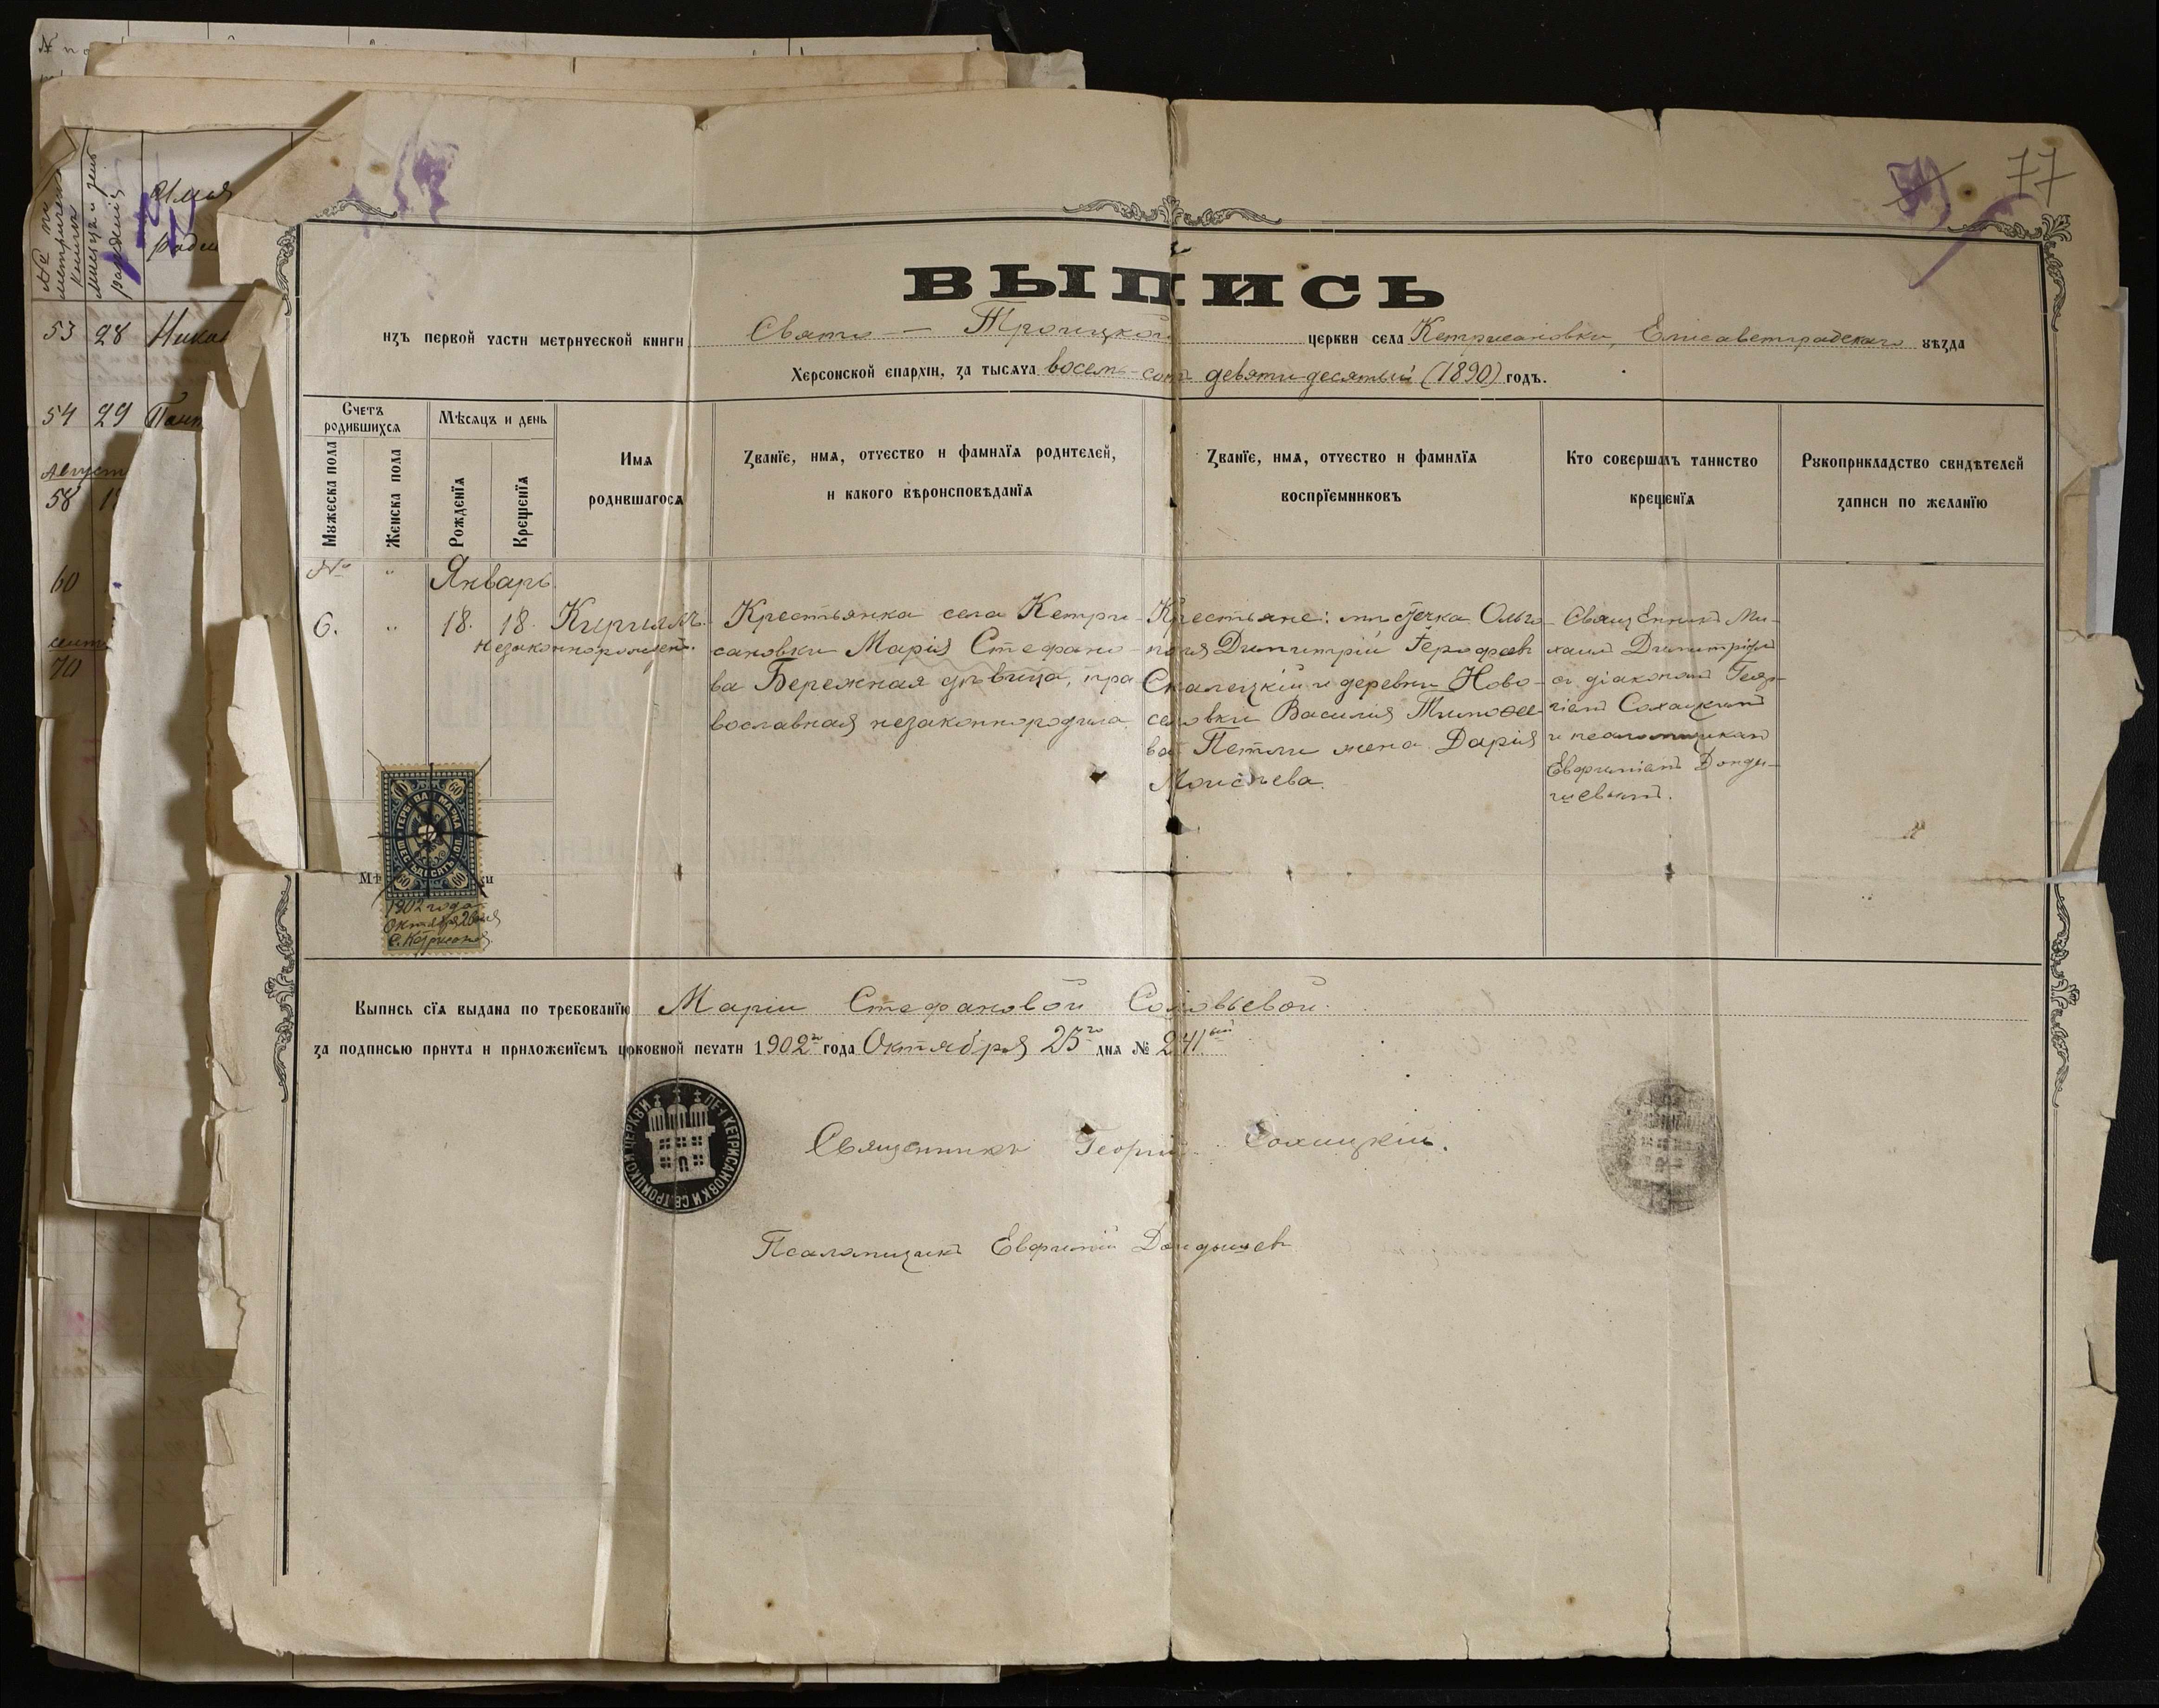 77
ВЫПИСЬ
изъ первой части метрической книги Свято — Троицкой церкви села Кетрисановки, Елисаветградскаго уѣзда
Херсонской епархіи, за тысяча восемь-сотъ девяти-десятый (1890) годъ.
Счетъ родившихся
Мужеска пола
Женска пола
Мѣсяцъ и день
Рожденїя
Крещенїя
Имя
родившагося
Званїе, имя, отчество и фамилїя родителей,
и какого вѣроисповѣданїя
Званїе, имя, отчество и фамилїя
воспрїемниковъ
Кто совершалъ таинство
крещенїя
Рукоприкладство свидѣтелей
записи по желанїю
№ " Январь
6. " 18. 18. Кириллъ.
незаконнорожден.
Крестьянка села Кетри-
сановки Марія Стефано-
ва Бережная дѣвица, пра-
вославная незаконнородила.
Крестьяне: мѣстечка Ольго-
поля Димитрій
Скалецкій и деревни Ново-
селовки Василія Тимоѳее-
ва Петли жена Дарія
Моисѣева.
Священникъ Ми-
хаилъ Димитріевъ
съ діакономъ Геор-
гіемъ Сохацкимъ
и псаломщикомъ
Евфиміемъ
ГЕРБОВАЯ МАРКА
ШЕСТЬДЕСЯТЪ КОП.
60 60
60 60
1902 года
Октября 25 дня
с. Кетрисанов.
Выпись сїя выдана по требованїю Маріи Стефановой Соловьевой.
за подписью причта и приложенїемъ церковной печати 1902го года Октября 25го дня № 241ый
ПЕЧ. КЕТРИСАНОВКИ СВ. ТРОИЦКОЙ ЦЕРКВИ
Священникъ Георгій Сохацкій.
Псаломщикъ Евфимій
53 28
54 29
Август
58
60
70